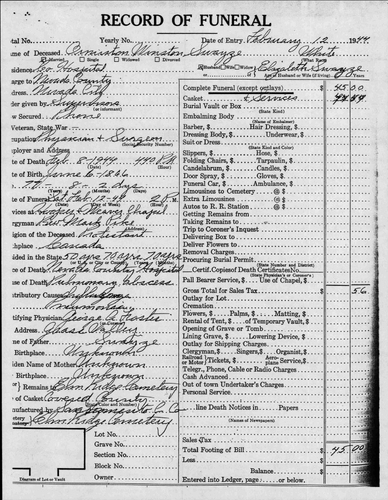 RECORD OF FUNERAL
tal No.
Yearly No.
Date of Entry February 12 1944
me of Deceased Armiston Winston Swayze
White
(What Race)
Married
Single
Widowed
Divorced
Husband, Wife, Widow of Elizabeth Swayze
Age of Husband or Wife (if living)
sidence Co Hospital
Nevada County
dress Nevada City
der given by Supervisors
w Secured Phone
Veteran, State War
upation Physician & Surgeon
(Social Security Number)
ployer and Address
te of Death Feb. 8-1944 4:40 P.M.
te of Birth June 6-1866
(Years) (Months) (Days)
8 2 days
te of Funeral Sat Feb-12-44 2 P.M.
vices at Chapel
gyman Rev
igion of the Deceased Protestant
hplace Canada
sided in the State
ce of Death Nevada County Hospital
te of Death Pulmonary abscess
tributory Causes
tifying Physician George
Address Grass Valley
me of Father Swayze
Birthplace Unknown
iden Name of Mother Unknown
Birthplace Unknown
Remains to Elm Ridge Cemetery
of Casket Covered County
nufactured by Sacramento C. Co
etery Elm Ridge Cemetery
Lot No.
Grave No.
Section No.
Block No.
Owner
Diagram of Lot or Vault
Complete Funeral (except outlays) $ 45 00
Casket & Services
Burial Vault or Box
(State Kind)
Embalming Body
(Name of Embalmer)
Barber, $ Hair Dressing, $
Dressing Body, $ Underwear, $
Suit or Dress
(State Kind and Color)
Slippers, $ Hose, $
Folding Chairs, $ Tarpaulin, $
Candelabrum, $ Candles, $
Door Spray, $ Gloves, $
Funeral Car, $ Ambulance, $
Limousines to Cemetery @ $
Extra Limousines @ $
Autos to R. R. Station @ $
Getting Remains from
Taking Remains to
Trip to Coroner's Inquest
Delivering Box to
Deliver Flowers to
Removal Charges
Procuring Burial Permit
(State Number and District)
Certif. Copies of Death Certificates No.
(State Physician's or Coroner's)
Pall Bearer Service, $ Use of Chapel, $
Gross Total for Sales Tax $ 56
Outlay for Lot
Cremation
Flowers, $ Palms, $ Matting, $
Rental of Tent, $ of Temporary Vault, $
Opening of Grave or Tomb
Lining Grave, $ Lowering Device, $
Outlay for Shipping Charges
Clergyman, $ Singers, $ Organist, $
Railroad or Motor Tickets, $ Aeroplane Service, $
Telegr., Phone, Cable or Radio Charges
Cash Advanced
Out of town Undertaker's Charges
Personal Service
line Death Notices in Papers
(Names of Newspapers)
Sales Tax
Total Footing of Bill $ 45 00
Less
Balance $
Entered into Ledger, page or below